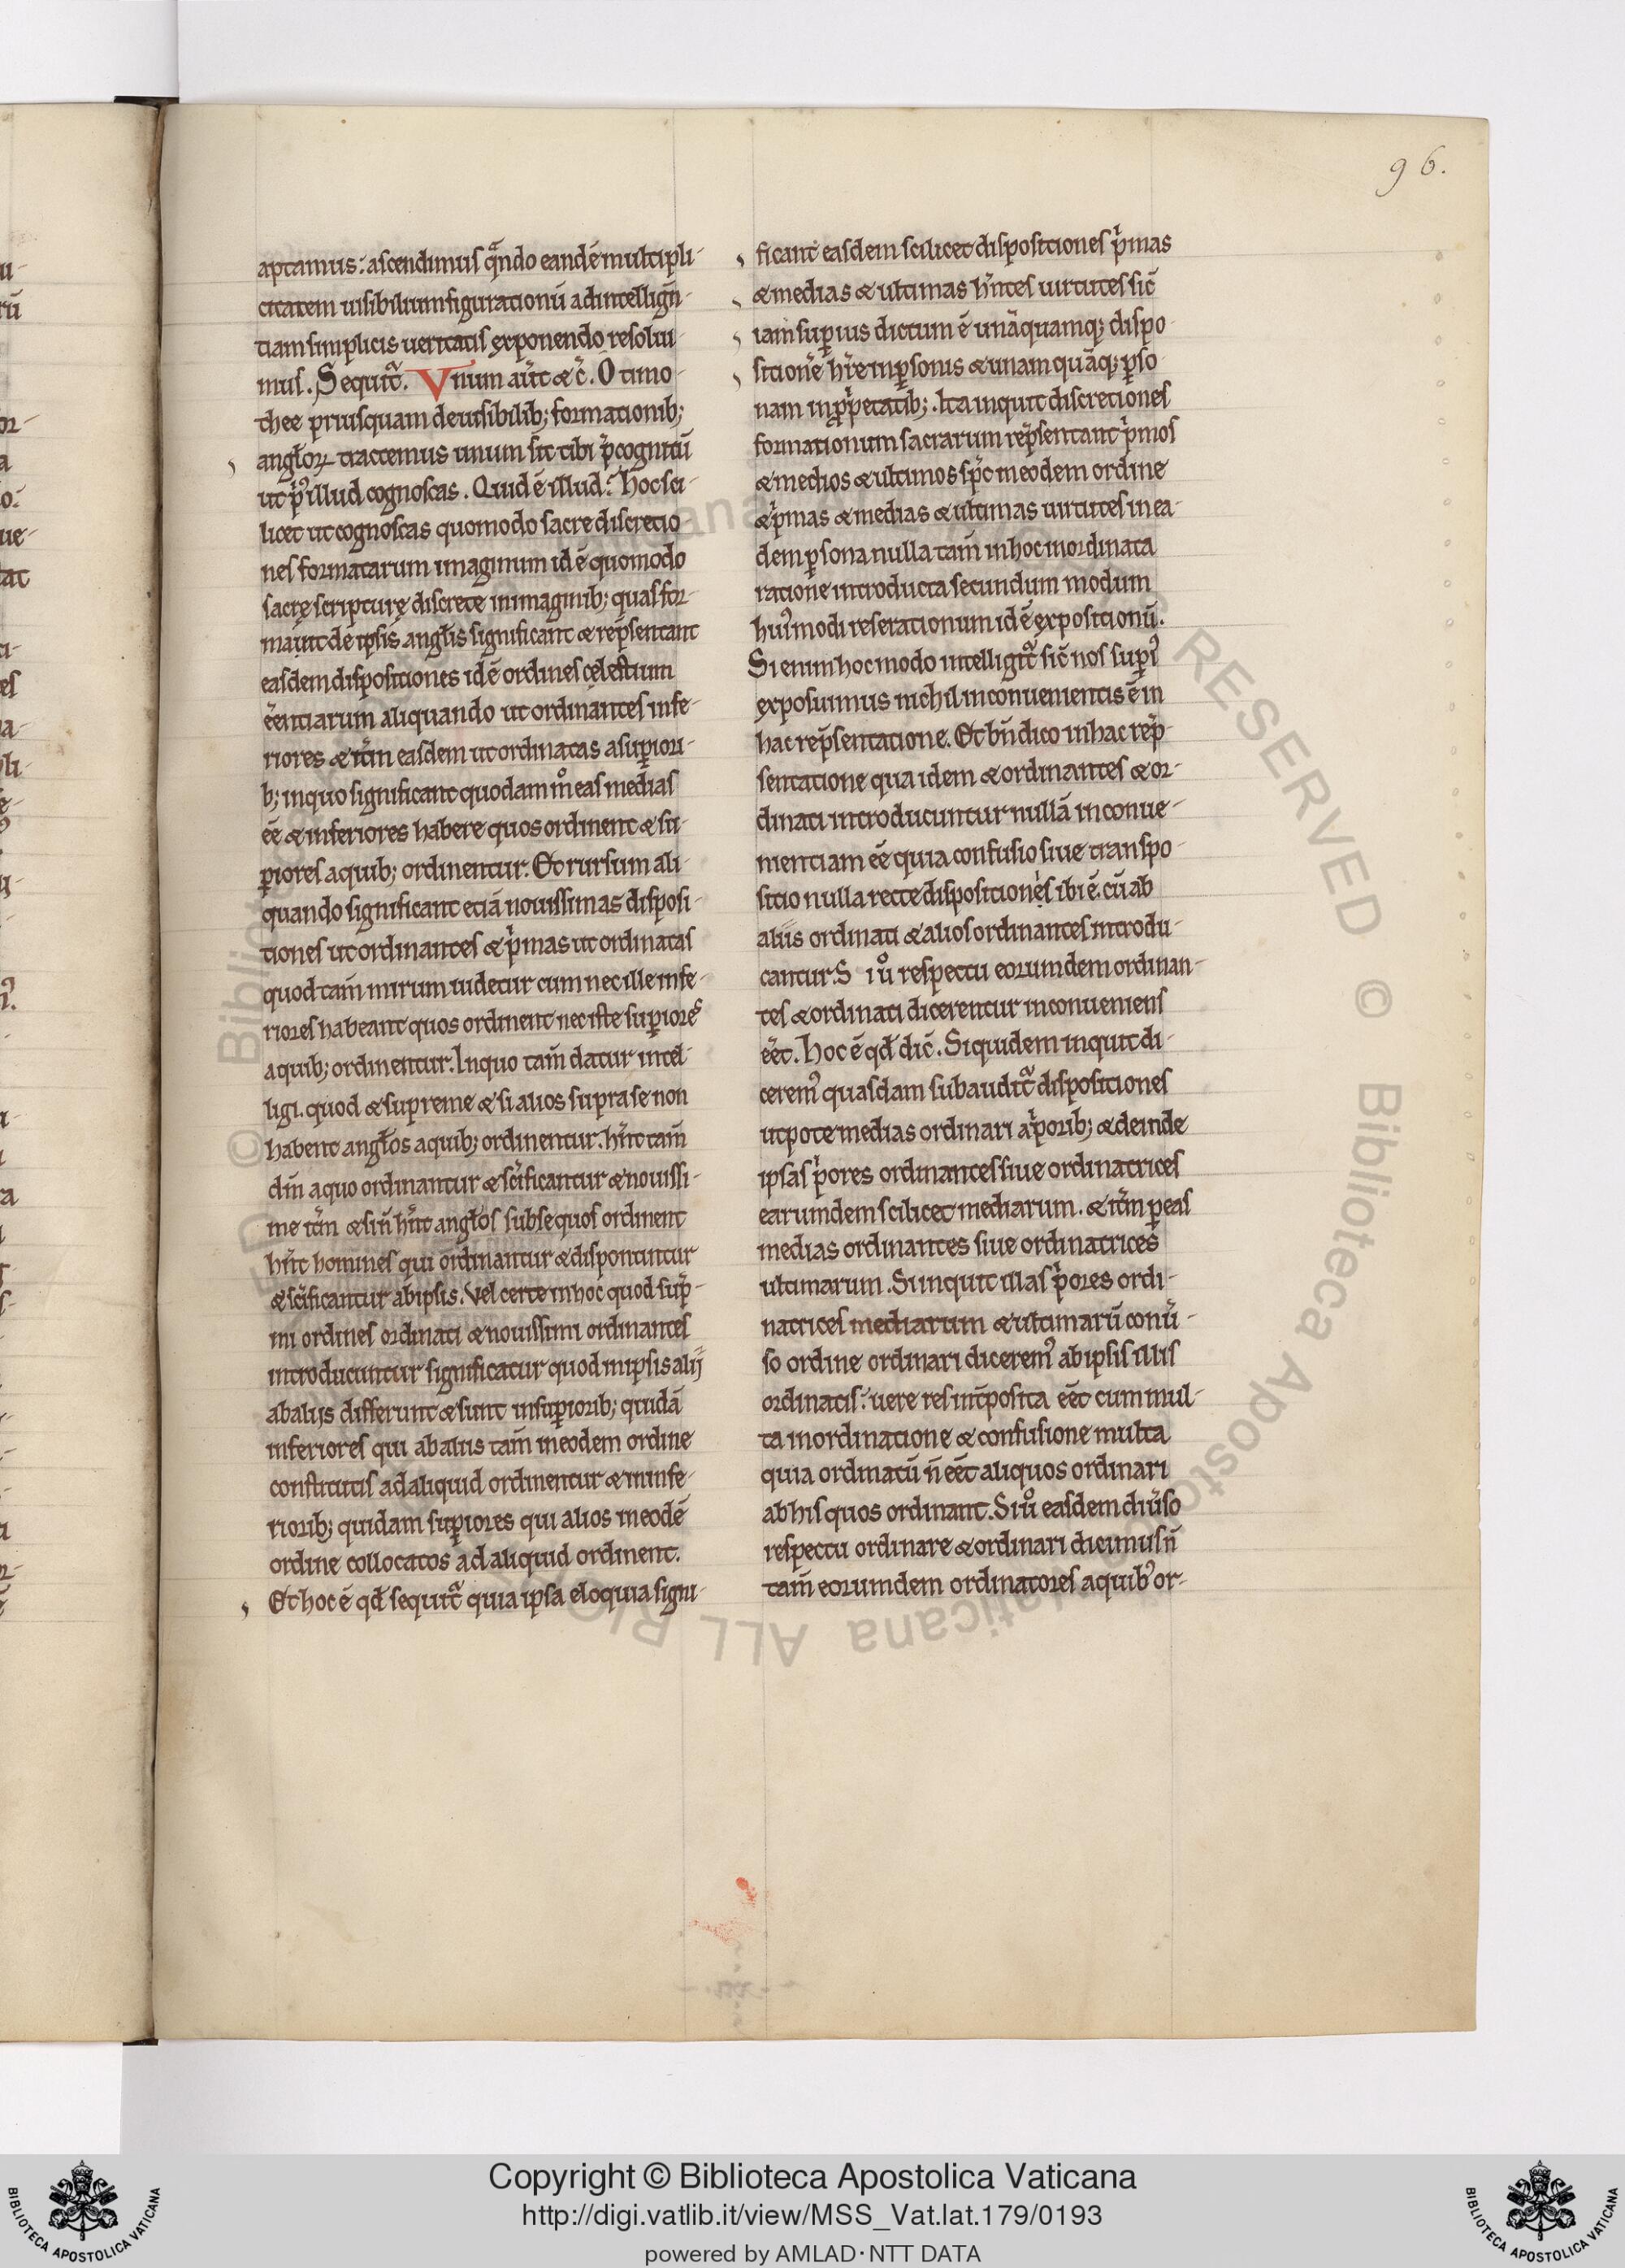 96.
aptamus: ascendimus qᷓndo eandē multipli-
citatem uisibilium figurationū ad intellign̄-
tiam simplicis ueritatis exponendo resolui-
mus. Sequit᷑. Vnum aūt & c̄. O timo-
thee priusquam de uisibilib; formationib;
angꝉoꝝ tractemus unum sit tibi p̄cognitū
ut p᷒ illud cognoscas. Quid ē illud? Hoc sci-
licet ut cognoscas quomodo sacre discretio-
nes formatarum imaginum id ē quomodo
sacrę scripturę discrete in imaginib; quas for-
maúnt dē ipsis angꝉis significant & rep̄sentant
easdem dispositiones id ē ordines cęlestium
ēentiarum aliquando ut ordinantes infe-
riores & it̄m easdem ut ordinatas a supꝑiori-
b; in quo significant quodam m̊ eas medias
ēē & inferiores habere quos ordinent & su-
ꝑiores a quib; ordinentur. Et rursum ali-
quando significant etiā nouissimas disposi-
tiones ut ordinantes & p̄mas ut ordinatas
quod tam̄ mirum uidetur cum nec ille infe-
riores habeant quos ordinent nec iste suꝑiores
a quib; ordinentur. In quo tam̄ datur intel-
ligi. quod & supreme & si alios supra se non
habent angꝉos a quib; ordinentur. hn̄t tam̄
dn̄m a quo ordinantur & sc̄ificantur & nouissi-
me it̄m & si n̄ hn̄t angꝉos subse quos ordinent
hn̄t homines qui ordinantur & disponuntur
& sc̄ificantur ab ipsis. Vel certe in hoc quod sup̄-
mi ordines ordinati & nouissimi ordinantes
introducuntur significatur quod in ipsis alij
ab alijs differunt & sunt in suꝑiorib; quidā
inferiores qui ab aliis tam̄ in eodem ordine
constitutis ad aliquid ordinentur & in infe-
riorib; quidam suꝑiores qui alios in eodē
ordine collocatos ad aliquid ordinent.
Et hoc ē qđ sequit᷑ quia ipsa eloquia signi-
ficant easdem scilicet dispositiones p̄mas
& medias & ultimas hn̄tes uirtutes sic̄
iam suꝑius dictum ē unāquamq; dispo-
sitionē hr̄e in ꝑsonis & unam quāq; ꝑso-
nam in ꝓp̄etatib;. Ita inquit discretiones
formationum sacrarum rep̄sentant p̄mos
& medios & ultimos sp̄c in eodem ordine
& p̄mas & medias & ultimas uirtutes in ea-
dem ꝑsona nulla tam̄ in hoc inordinata
ratione introducta secundum modum
hui᷒modi reserationum id ē expositionū.
Si enim hoc modo intelligit᷑ sic̄ nos suꝑi᷒
exposuimus nichil inconuenientis ē in
hac rep̄sentatione. Et bn̄ dico in hac rep̄-
sentatione qua idem & ordinantes & or-
dinati introducuntur nullā inconue-
nientiam ēē quia confusio siue transpo-
sitio nulla recte dispositiones ibi ē. cū ab
aliis ordinati & alios ordinantes introdu-
cantur. S i ů respectu eorumdem ordinan-
tes & ordinati dicerentur inconueniens
ēēt. Hoc ē qđ dic̄. Siquidem inquit di-
cerem᷒ quasdam subaudit᷑ dispositiones
utpote medias ordinari a p̄orib; & deinde
ipsas p̄ores ordinantes siue ordinatrices
earumdem scilicet mediarum. & it̄m ꝑ eas
medias ordinantes siue ordinatrices
ultimarum. Si inquit illas p̄ores ordi-
natrices mediarum & ultimarū conū-
so ordine ordinari dicerem᷒ ab ipsis illis
ordinatis: uere res int̄posita ēēt cum mul-
ta inordinatione & confusione multa
quia ordinatū n̄ ēēt aliquos ordinari
ab his quos ordinant. Si ů easdem diūso
respectu ordinare & ordinari dicimus n̄
tam̄ eorumdem ordinatores a quib᷒ or-
Copyright © Biblioteca Apostolica Vaticana
http://digi.vatlib.it/view/MSS_Vat.lat.179/0193
powered by AMLAD·NTT DATA
BIBLIOTECA APOSTOLICA VATICANA
BIBLIOTECA APOSTOLICA VATICANA